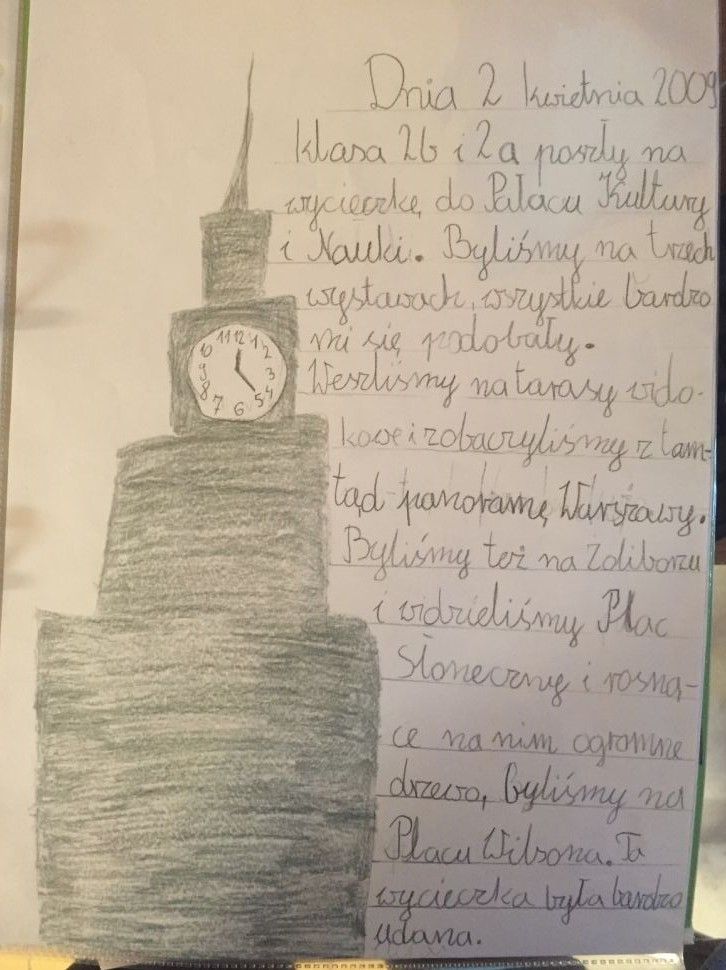 Dnia 2 kwietnia 2009
klasa 2b i 2a poszły na
wycieczkę do Pałacu Kultury
i Nauki. Byliśmy na trzech
wystawach, wszystkie bardzo
mi się podobały.
11 12 1
10 2
9 3
8 4
7 6 5
Weszliśmy na tarasy wido-
kowe i zobaczyliśmy z tam-
tąd panoramę Warszawy.
Byliśmy też na Żoliborzu
i widzieliśmy Plac
Słoneczny i rosną-
ce na nim ogromne
drzewo, byliśmy na
Placu Wilsona. Ta
wycieczka była bardzo
udana.